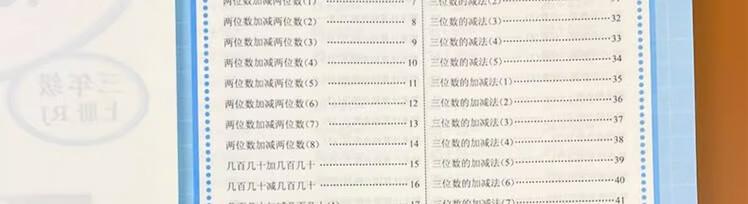 三年级
上册 RJ
两位数加减两位数(1) 7
两位数加减两位数(2) 8
两位数加减两位数(3) 9
两位数加减两位数(4) 10
两位数加减两位数(5) 11
两位数加减两位数(6) 12
两位数加减两位数(7) 13
两位数加减两位数(8) 14
几百几十加几百几十 15
几百几十减几百几十 16
三位数的减法(2)
三位数的减法(3) 32
三位数的减法(4) 33
三位数的减法(5) 34
三位数的加减法(1) 35
三位数的加减法(2) 36
三位数的加减法(3) 37
三位数的加减法(4) 38
三位数的加减法(5) 39
三位数的加减法(6) 40
三位数的加减法(7) 41